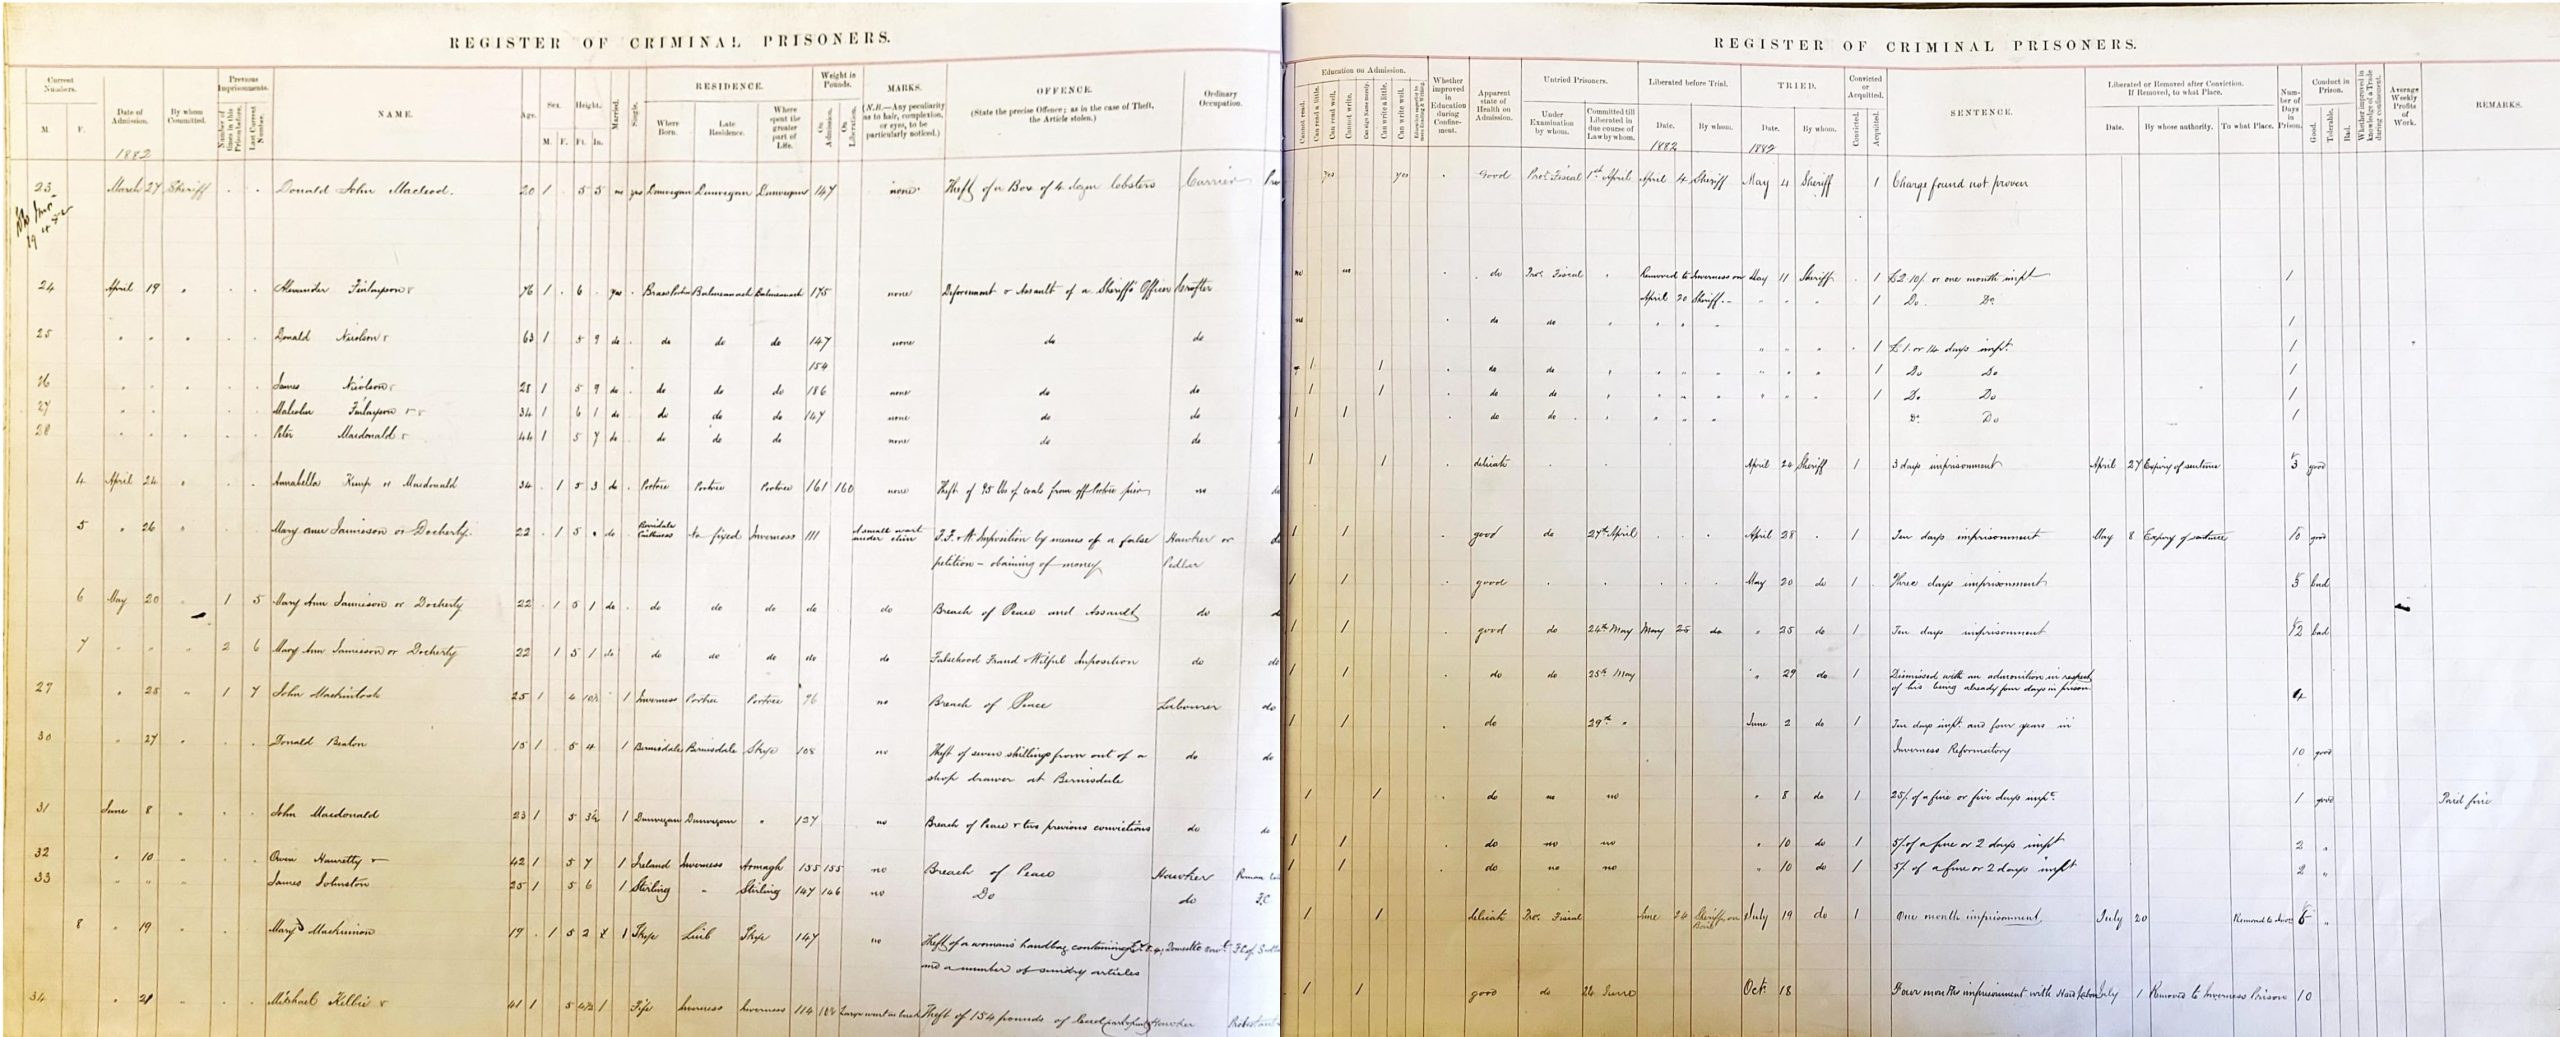 REGISTER OF CRIMINAL PRISONERS.
Current Numbers. M. F.
Date of Admission. 1882
By whom Committed.
Previous Imprisonments. Number of times in this Prison before. Last Current Number.
NAME.
Age.
Sex. M. F.
Height. Ft. In.
Married. Single.
RESIDENCE. Where Born. Late Residence. Where spent the greater part of Life.
Weight in Pounds. On Admission. On Liberation.
MARKS. (N.B.—Any peculiarity as to hair, complexion, or eyes, to be particularly noticed.)
OFFENCE. (State the precise Offence; as in the case of Theft, the Article stolen.)
Ordinary Occupation.
23 March 27 Sheriff . . Donald John Macleod. 20 1 . 5 5 no yes Dunvegan Dunvegan Dunvegan 147 none Theft of a Box of 4 dozn lobsters Carrier
24 April 19 " . . Alexander Finlayson 76 1 . 6 . yes . Balmeanach Balmeanach 175 none Deforcement & Assault of a Sheriff's Officer Crofter
25 " " " . . Donald Nicolson 63 1 5 9 do . do do do 147 none do do
154
26 " " . . James Nicolson 28 1 5 9 do do do do 186 none do do
27 " " . . Malcolm Finlayson 34 1 6 1 do do do do 147 none do do
28 " " . . Peter Macdonald 44 1 5 7 do do do do none do do
4 April 24 " . . Annabella Kemp or Macdonald 34 . 1 5 3 do . Portree Portree Portree 161 160 none Theft of 95 lbs of coals from off Portree pier no
5 " 26 " . . Mary Ann Jamieson or Docherty. 22 . 1 5 . do . Berridale Caithness No fixed Inverness 111 A small wart under chin F.F. & W. Imposition by means of a false Hawker or
petition – obaining of money Pedlar
6 May 20 " 1 5 Mary Ann Jamieson or Docherty 22 . 1 5 1 do . do do do do do Breach of Peace and Assault do
7 " " " 2 6 Mary Ann Jamieson or Docherty 22 1 5 1 do do do do do do Falsehood Fraud & Wilful Imposition do do
27 " 25 " 1 7 John Mackintosh 25 1 4 10½ 1 Inverness Portree Portree 96 no Breach of Peace Labourer do
30 " 27 " . . Donald Beaton 15 1 . 5 4 1 Bernisdale Bernisdale Skye 108 no Theft of seven shillings from out of a do do
shop drawer at Bernisdale
31 June 8 " . . John Macdonald 23 1 5 3½ 1 Dunvegan Dunvegan " 127 no Breach of Peace & two previous convictions do do
32 " 10 " . . Owen Hanretty 42 1 5 7 1 Ireland Inverness Armagh 155 155 no Breach of Peace Hawker Roman
33 " " " James Johnston 25 1 5 6 1 Stirling " Stirling 147 146 no Do do F.C.
8 " 19 " . . Mary Mackinnon 19 . 1 5 2 1 Skye Luib Skye 147 no Theft of a woman's handbag containing Domestic Servt.
and a number of sundry articles
34 " 21 " . . Michael Kellie 41 1 5 4½ 1 Fife Inverness Inverness 114 Large wart on back Theft of 154 pounds of Hawker Protestant
REGISTER OF CRIMINAL PRISONERS.
Education on Admission. Cannot read. Can read a little. Can read well. Cannot write. Can sign Name merely. Can write a little. Can write well.
Whether improved in Education during Confinement.
Apparent state of Health on Admission.
Untried Prisoners. Under Examination by whom. Committed till Liberated in due course of Law by whom.
Liberated before Trial. Date. By whom. 1882
TRIED. Date. By whom. 1882
Convicted or Acquitted. Convicted. Acquitted.
SENTENCE.
Liberated or Removed after Conviction. If Removed, to what Place. Date. By whose authority. To what Place.
Number of Days in Prison.
Conduct in Prison. Good. Tolerable. Bad.
Whether improved in knowledge of a Trade during confinement.
Average Weekly Profits of Work.
REMARKS.
yes yes . Good Pror. Fiscal 1st April April 4 Sheriff May 4 Sheriff 1 Charge found not proven
no no . do Pror. Fiscal " Removed to Inverness on May 11 Sheriff . 1 £2.10/. or one month impt 1
April 20 Sheriff.– " " " 1 Do. Do.
no . do do " " " " 1
" " " . 1 £1. or 14 days impt. 1
1 1 . do do " " " " " " " 1 Do Do 1
1 1 . do do " " " " " " " 1 Do Do 1
1 1 . do do . " " " " Do. Do 1
1 1 delicate . . April 24 Sheriff 1 3 days imprisonment April 27 Expiry of sentence 3 good
1 1 . good do 27th April . . . April 28 . 1 Ten days imprisonment May 8 Expiry of sentence 10 good
1 1 . good . . . . . May 20 do 1 Three days imprisonment 3 bad
1 1 . good do 24th May May 25 do " 25 do 1 Ten days imprisonment 12 bad
1 1 . do do 25th May " 29 do 1 Dismissed with an admonition in respect
of his being already four days in prison. 4
1 1 . do 29th " June 2 do 1 Ten days impt. and four years in
Inverness Reformatory 10 good
1 1 . do no no " 8 do 1 25/. of a fine or five days impt. 1 good Paid fine
1 1 . do no no " 10 do 1 5/. of a fine or 2 days impt 2 "
1 1 do no no " 10 do 1 5/. of a fine or 2 days impt 2 "
1 1 delicate Pror. Fiscal June 24 Sheriff on Bail July 19 do 1 One month imprisonment July 20 "
1 1 good do 24 June Oct. 18 Four months imprisonment with Hard Labour July 1 Removed to Inverness Prison 10